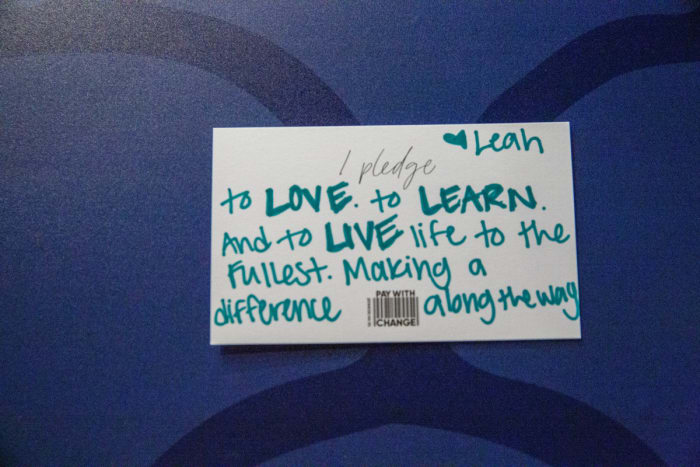 ♥Leah
I pledge
to LOVE. to LEARN.
And to LIVE life to the
Fullest. Making a
difference along the way
PAY WITH
CHANGE